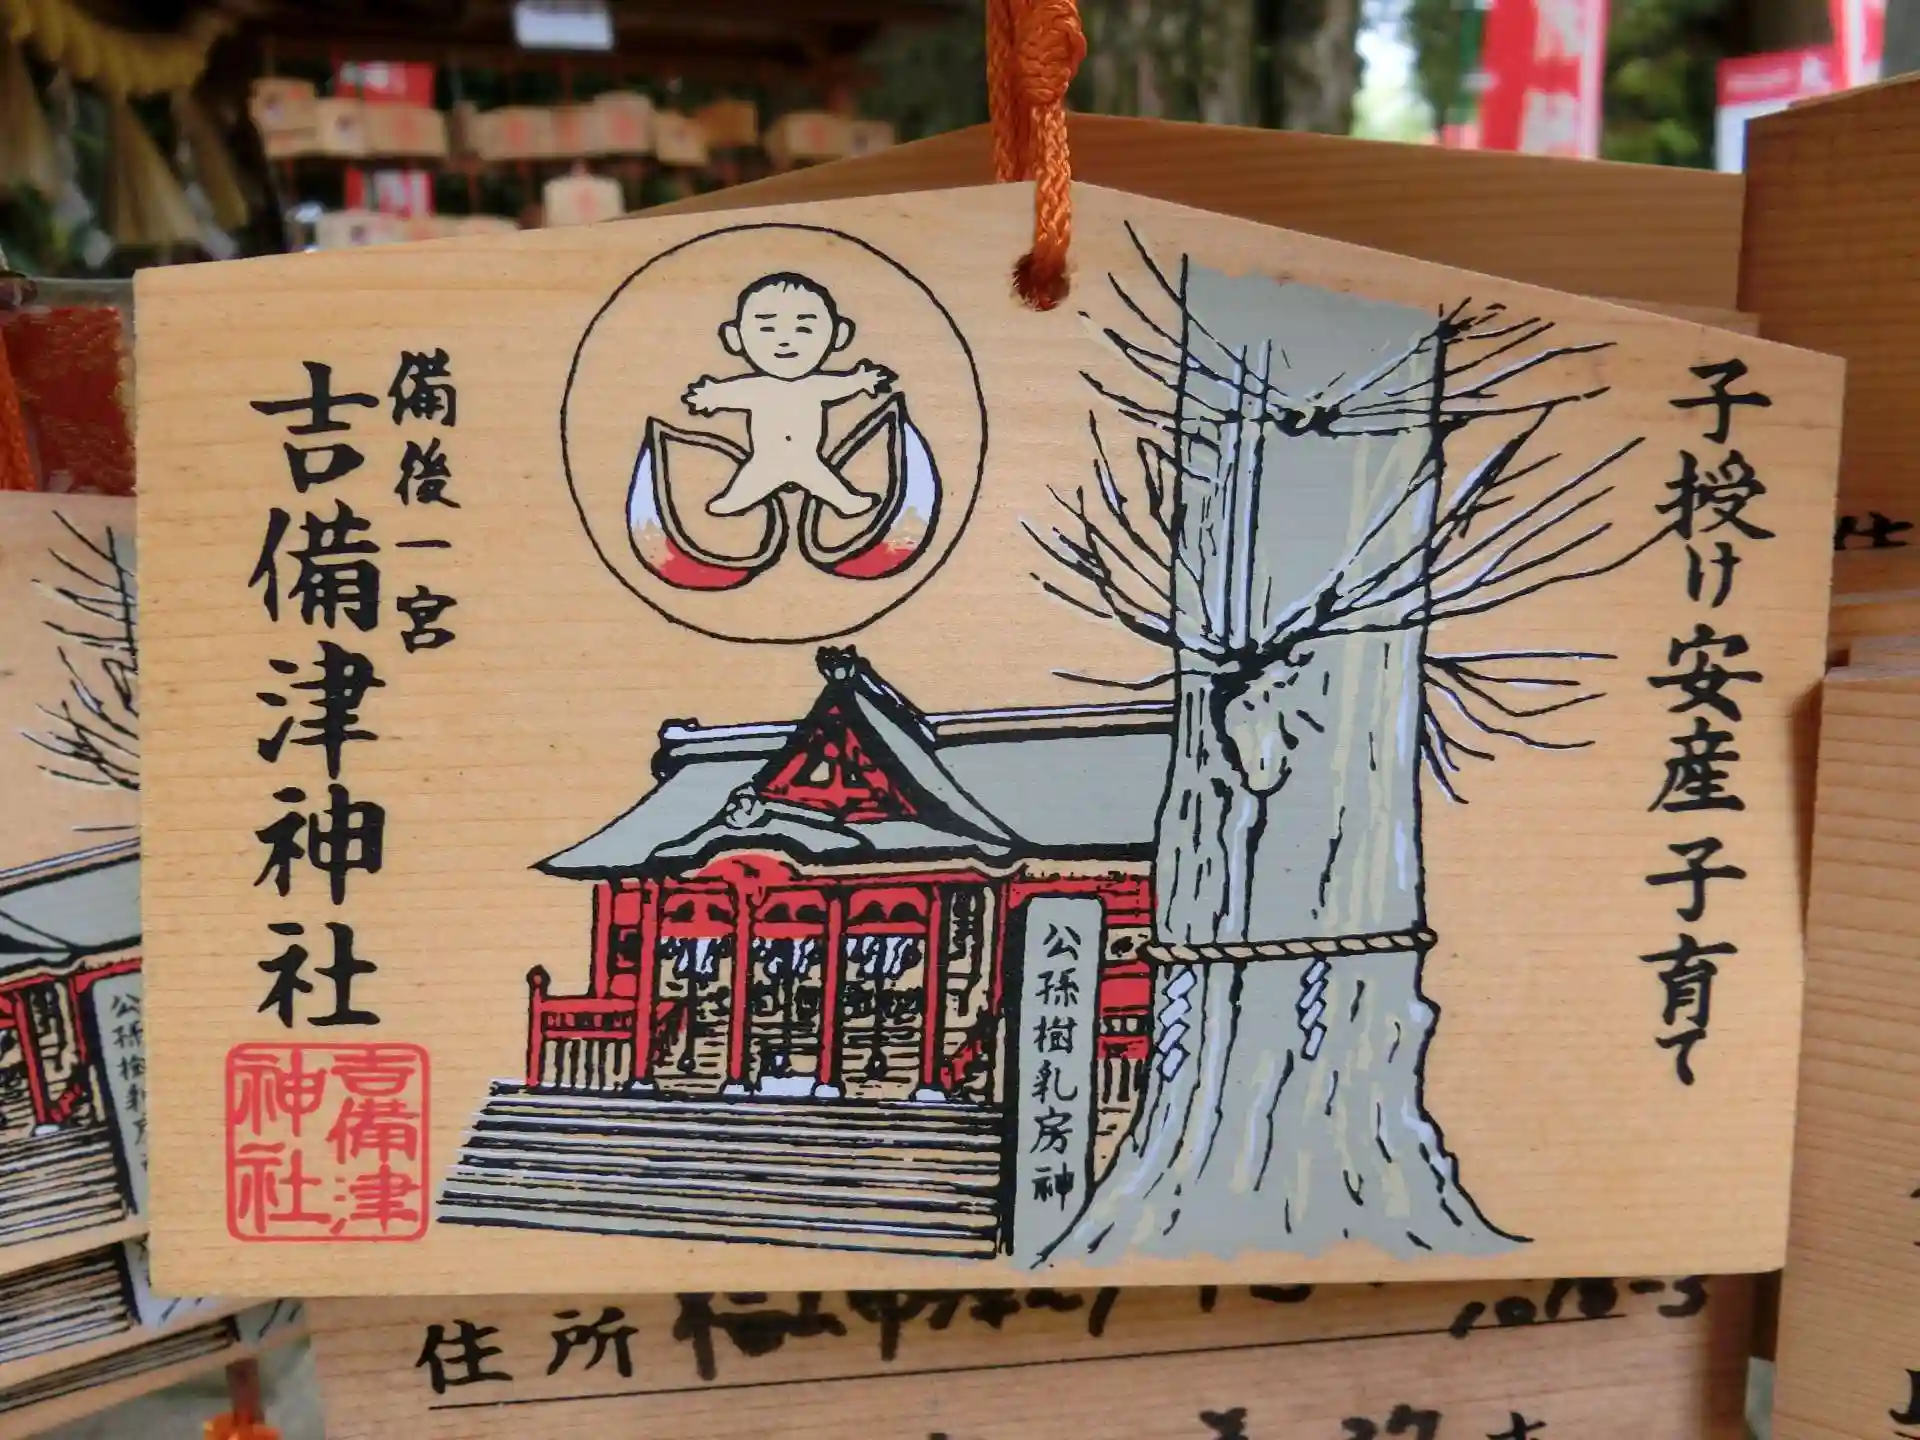 子授け安産子育て
公孫樹乳房神
備後一宮
吉備津神社
吉備津
神社
住所
1018-3
公孫樹乳房